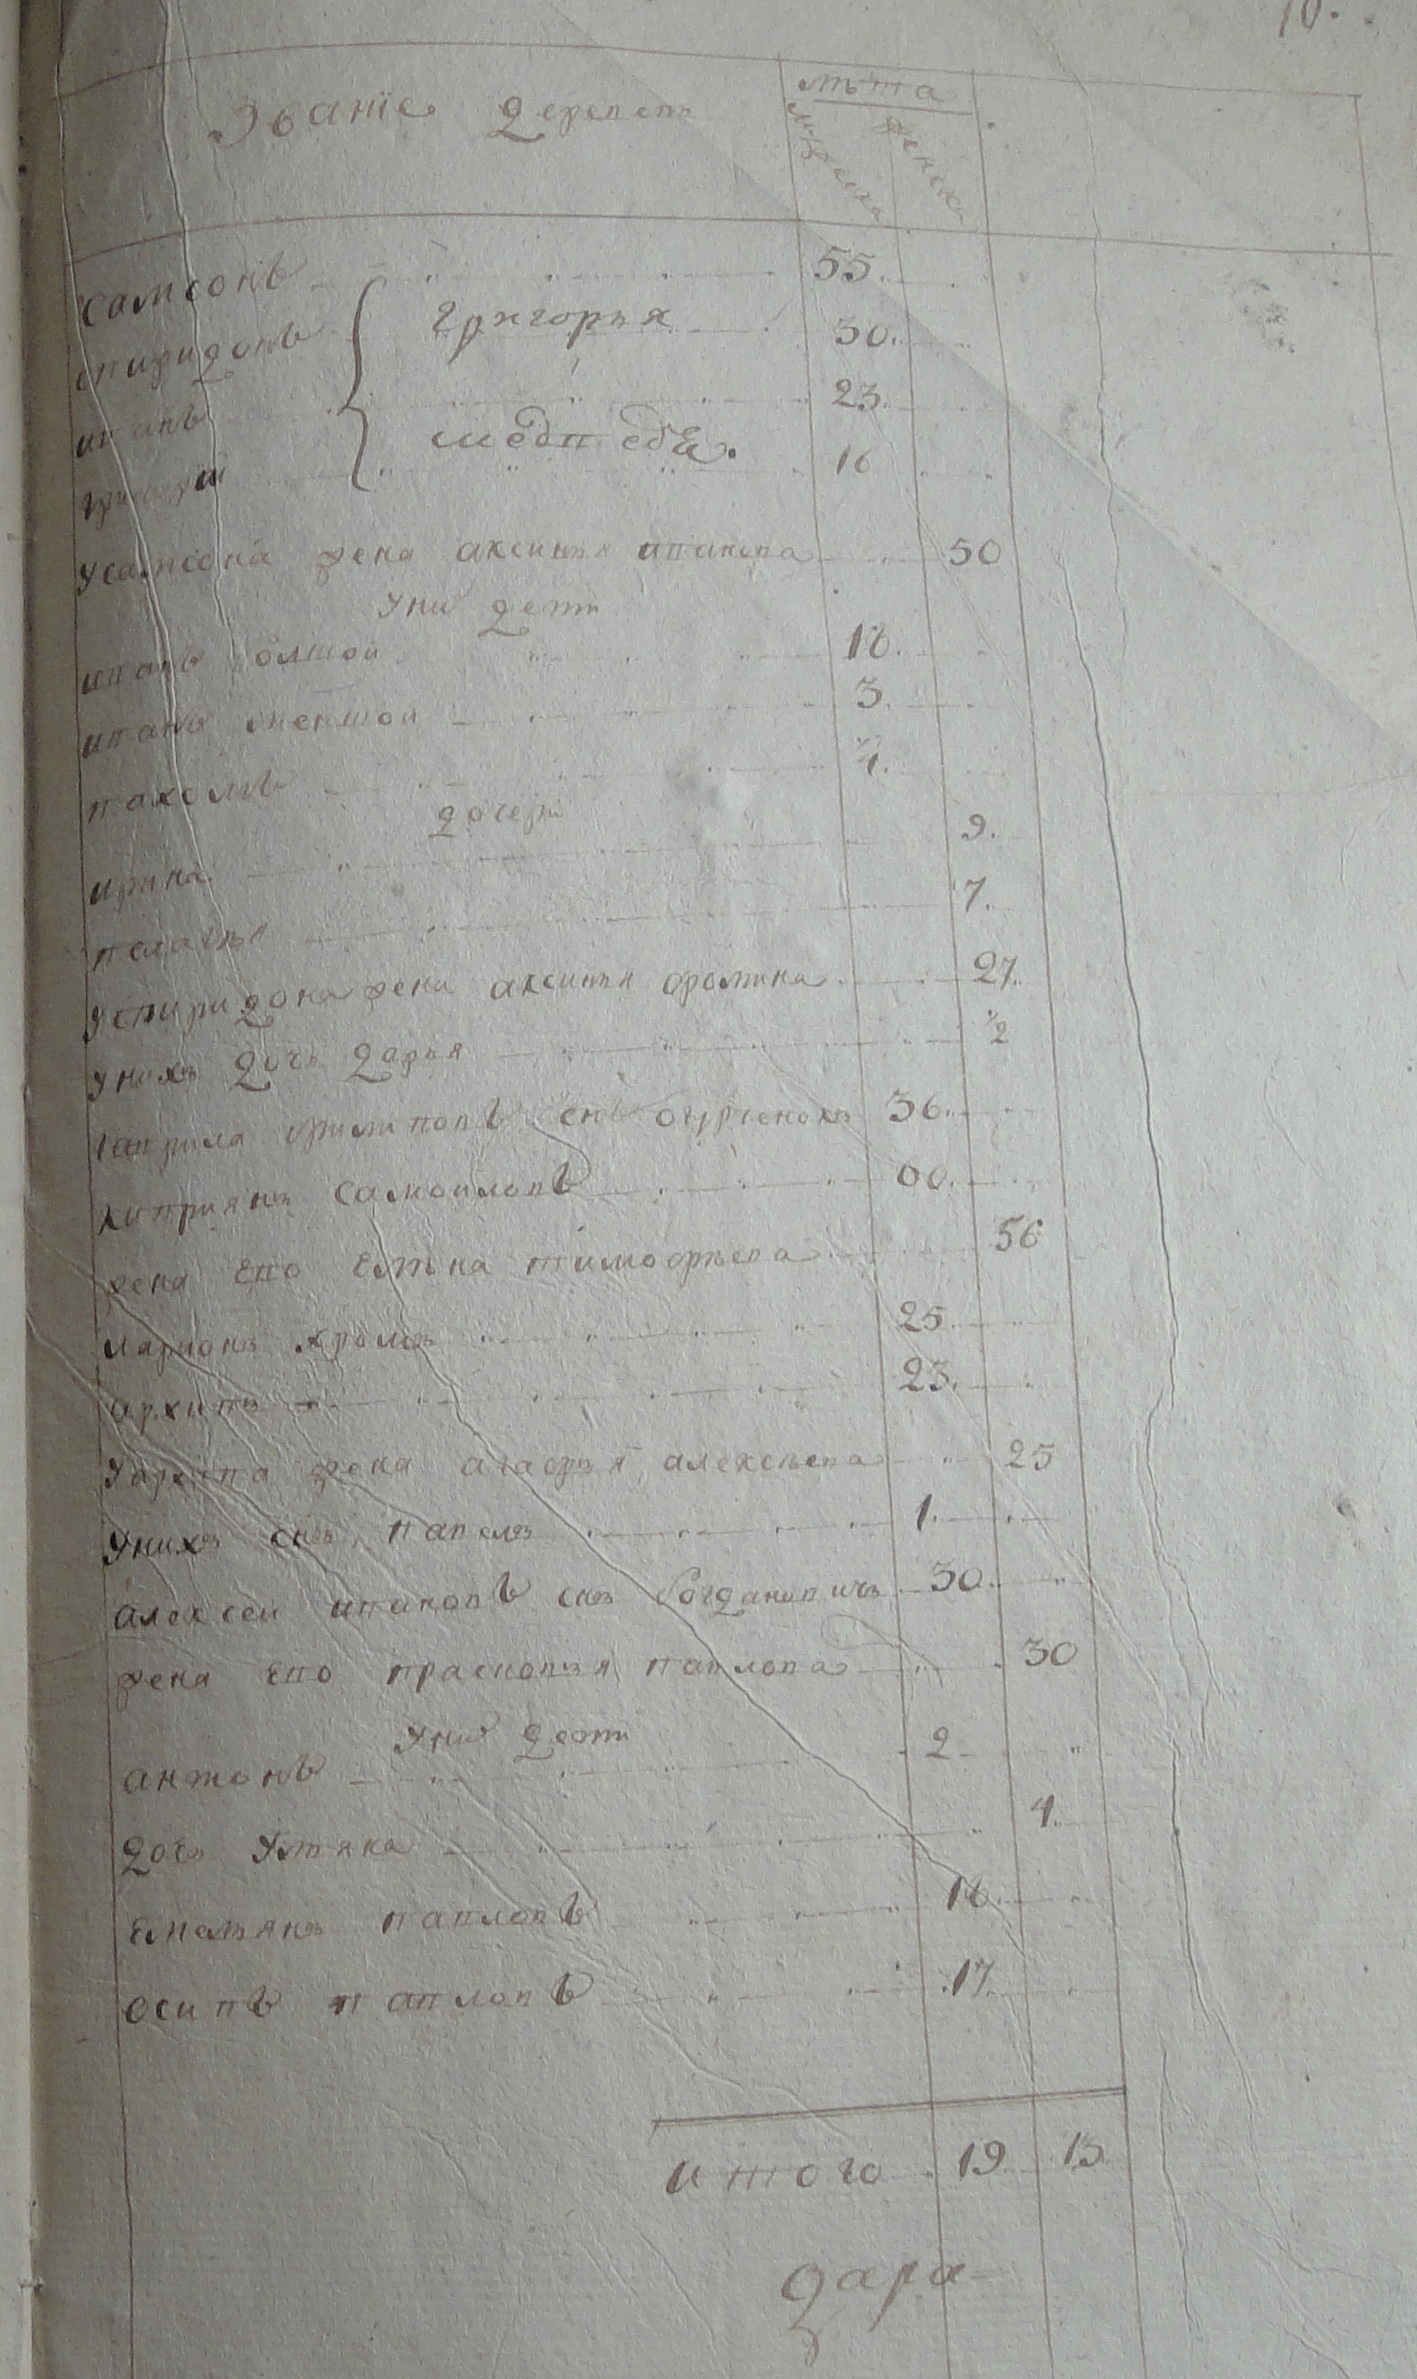 10.
Званіе деревень
лѣта
мужеска
женска
самсонъ 55.
спиридонъ григорья 30.
иванъ 23.
григорей медведя. 16
у самсона жена аксинья иванова 50
у них дети
иванъ болшой 18.
иванъ меншой 3.
пахомъ 1/4.
дочери
ирина 9.
пелагья 7.
у спиридона жена аксинья фомина 27.
у них дочь дарья 1/2
гаврила филиповъ снъ огурченокъ 36.
киприянъ самоиловъ 60.
жена ево елена тимофѣева 56
ларионъ хромъ 25.
архипъ 23.
у архипа жена агафья алексѣева 25
у нихъ снъ павелъ 1.
алексей ивановъ снъ богдановичъ 30.
жена ево прасковья павлова 30
у них дети
антонъ 2
дочь ульяна 4.
емельянъ павловъ 18.
осипъ павловъ 17.
итого 19 13.
дара